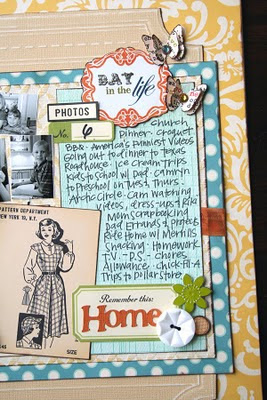 DAY
in the life
PHOTOS
No. 6
church
dinner · croquet
BBQ · America's Funniest Videos
Going out to dinner to Texas
Roadhouse · Ice Cream Trips
kids to school w/ Dad · camryn
to Preschool on Tues & Thurs.
Arctic Circle · Cam watching
videos, dress-ups
Mom Scrapbooking
Dad Errands & projects
Ride Home w/ Merhills
Snacking · Homework
T.V. · D.S. · chores
Allowance · Chick-fil-A
Trips to Dollar Store
PATTERN DEPARTMENT
NEW YORK 10, N.Y.
SIZE
Remember this:
Home